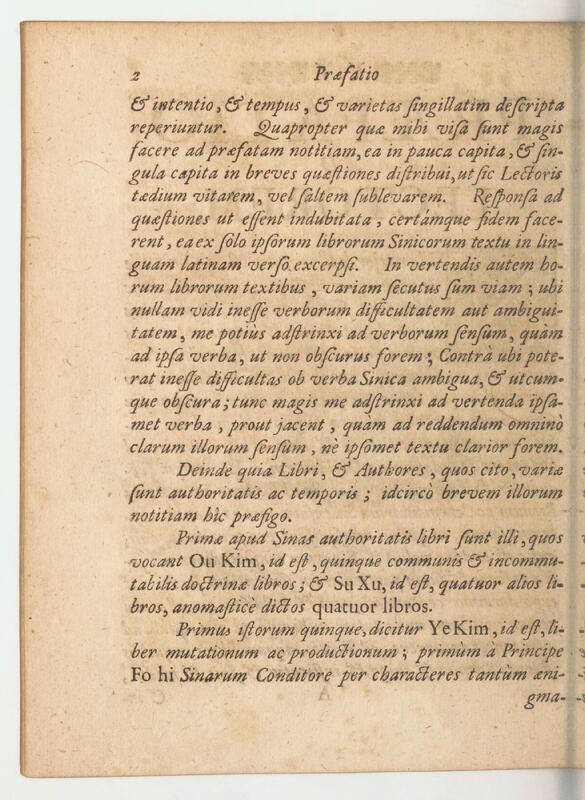 2 Præfatio
& intentio, & tempus, & varietas ſingillatim deſcripta
reperiuntur. Quapropter quæ mihi viſa ſunt magis
facere ad præfatam notìtiam, ea in pauca capita, & ſin-
gula capita in breves quæſtiones diſtribui, ut ſic Lectoris
tædium vitarem, vel ſaltem ſublevarem. Reſponſa ad
quæſtiones ut eſſent indubitata, certámque fidem face-
rent, ea ex ſolo ipſorum librorum Sinicorum textu in lin-
guam latinam verſo excerpſi. In vertendis autem ho-
rum librorum textibus, variam ſecutus ſum viam; ubi
nullam vidi ineſſe verborum difficultatem aut ambigui-
tatem, me potiùs adſtrinxi ad verborum ſenſum, quàm
ad ipſa verba, ut non obſcurus forem; Contrà ubi pote-
rat ineſſe difficultas ob verba Sinica ambigua, & utcum-
que obſcura; tunc magis me adſtrinxi ad vertenda ipſa-
met verba, prout jacent, quàm ad reddendum omninò
clarum illorum ſenſum, nè ipſomet textu clarior forem.
Deinde quia Libri, & Authores, quos cito, variæ
ſunt authoritatis ac temporis; idcircò brevem illorum
notitiam hìc præfigo.
Primæ apud Sinas authoritatis libri ſunt illi, quos
vocant Ou Kim, id eſt, quinque communis & incommu-
tabilis doctrinæ libros; & Su Xu, id eſt, quatuor alios li-
bros, anomaſticè dictos quatuor libros.
Primus iſtorum quinque, dicitur Ye Kim, id eſt, li-
ber mutationum ac productionum; primùm à Principe
Fo hi Sinarum Conditore per characteres tantùm æni-
gma-